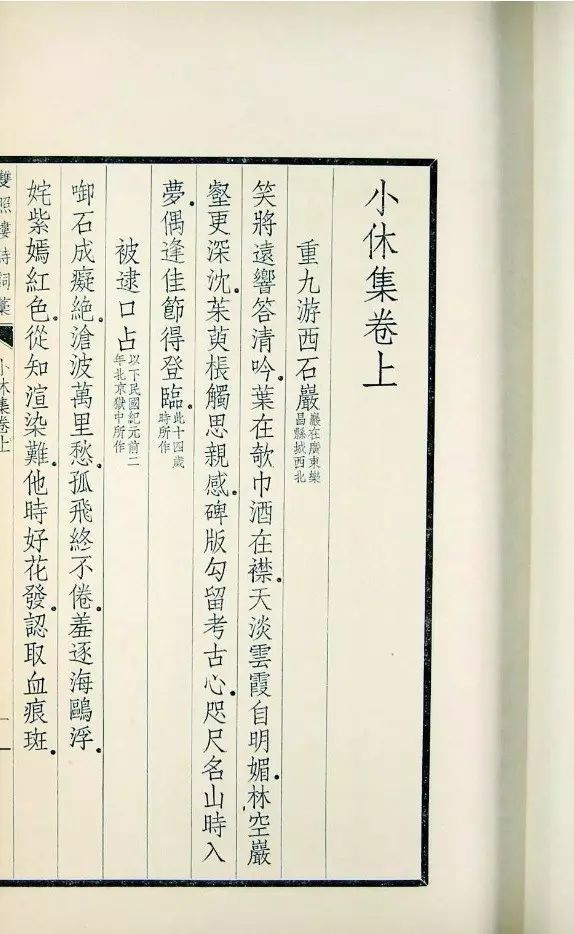 小休集卷上
重九游西石巖巖在廣東樂昌縣城西北
笑將遠響答清吟。葉在欹巾酒在襟。天淡雲霞自明媚。林空巖
壑更深沈。茱萸棖觸思親感。碑版勾留考古心。咫尺名山時入
夢。偶逢佳節得登臨。此十四歲時所作
被逮口占以下民國紀元前二年北京獄中所作
啣石成癡絕。滄波萬里愁。孤飛終不倦。羞逐海鷗浮。
姹紫嫣紅色。從知渲染難。他時好花發。認取血痕斑。
雙照樓詩詞藁 小休集卷上 一